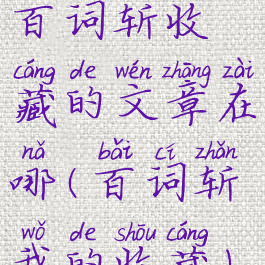 百词斩收
cáng de wén zhāng zài
藏的文章在
nǎ bǎi cí zhǎn
哪(百词斩
wǒ de shōu cáng
我的收藏)